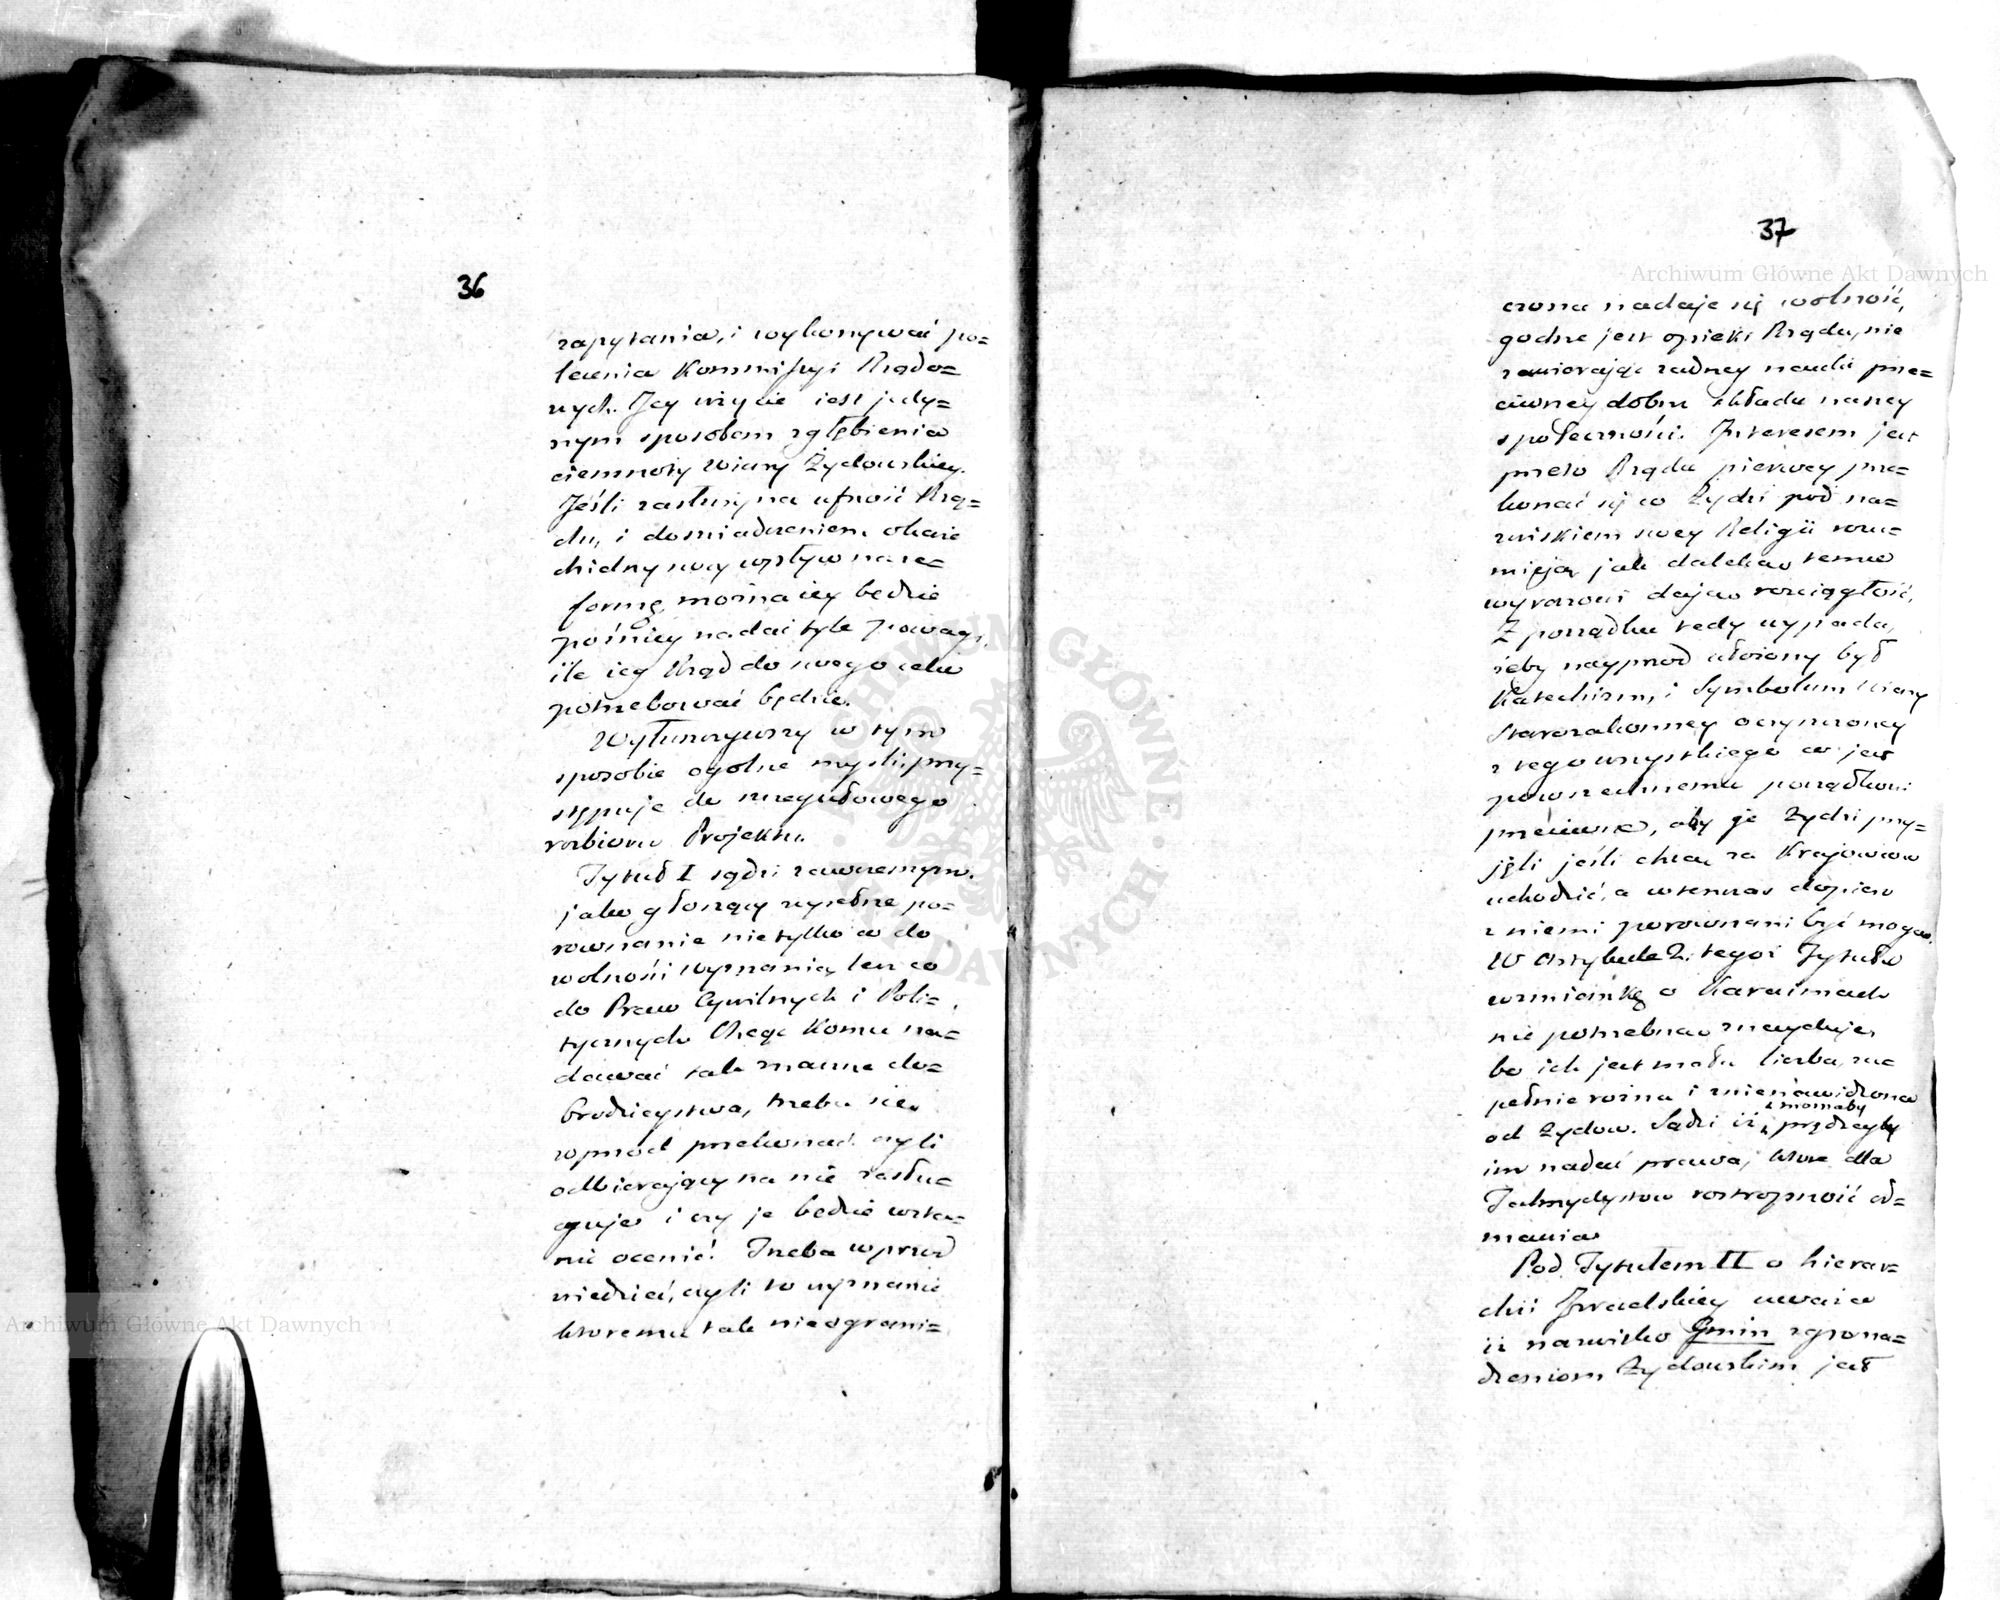 36
zapytania, i wykonywać po=
lecenia Kommissyi Rządo=
wych. Jey użycie iest jedy=
nym sposobem zgłębienia
ciemnoty wiary Żydowskiey.
Jeśli zasłuży na ufność Rzą=
du, i doświadczeniem okaże
chętny swoy wpływ na re=
formę, można iey będzie
poźniey nadać tyle powagi,
ile iey Rząd do swego celu
potrzebować będzie.
Wytłumaczywszy w tym
sposobie ogolne myśli, przy=
stępuję do szczegułowego
rozbioru Projektu.
Tytuł I sądzi zawczesnym,
jako głoszący zupełne po=
rownanie nie tylko co do
wolności wyznania, lecz co
do Praw Cywilnych i Poli=
tycznych. Chcąc komu na=
dawać tak ważne do=
brodzieystwa, trzeba się
wprzod przekonać czyli
odbierający na nie zasłu=
guje i czy je będzie w sta=
nie ocenić. Trzeba wprzod
wiedzieć, czyli to wyznanie
ktoremu tak nieograni=
37
czona nadaje się wolność,
godne jest opieki Rządu, nie
zawierając żadney nauki prze=
ciwney dobru składu naszey
społeczności. Interesem jest
przeto Rządu pierwey prze=
konać się co Żydzi pod na=
zwiskiem swey Religii rozu=
mieją jak daleką temu
wyrazowi dają rozciągłość.
Z porządku tedy wypada,
żeby nayprzod ułożony był
Katechizm, i Symbolum Wiary
Starozakonney oczyszczoney
z tego wszystkiego co jest
powszechnemu porządkowi
przeciwne, aby je Żydzi przy=
jęli jeśli chcą za Krajowcow
uchodzić, a wtenczas dopiero
z niemi porownani być mogą.
W Artykule 2. tegoż Tytułu
wzmiankę o Karaimach
nie potrzebną znayduje,
bo ich jest mała liczba, zu=
pełnie rożna i znienawidzona
od Żydow. Sądzi iż
możnaby
prędzey
im nadać prawa, ktore dla
Talmudystow roztropność od=
mawia.
Pod Tytułem II o hierar=
chii Izraelskiey uważa
iż nazwisko Gmin zgroma=
dzeniom Żydowskim jest
Archiwum Główne Akt Dawnych
Archiwum Główne Akt Dawnych
ARCHIWUM GŁÓWNE AKT DAWNYCH